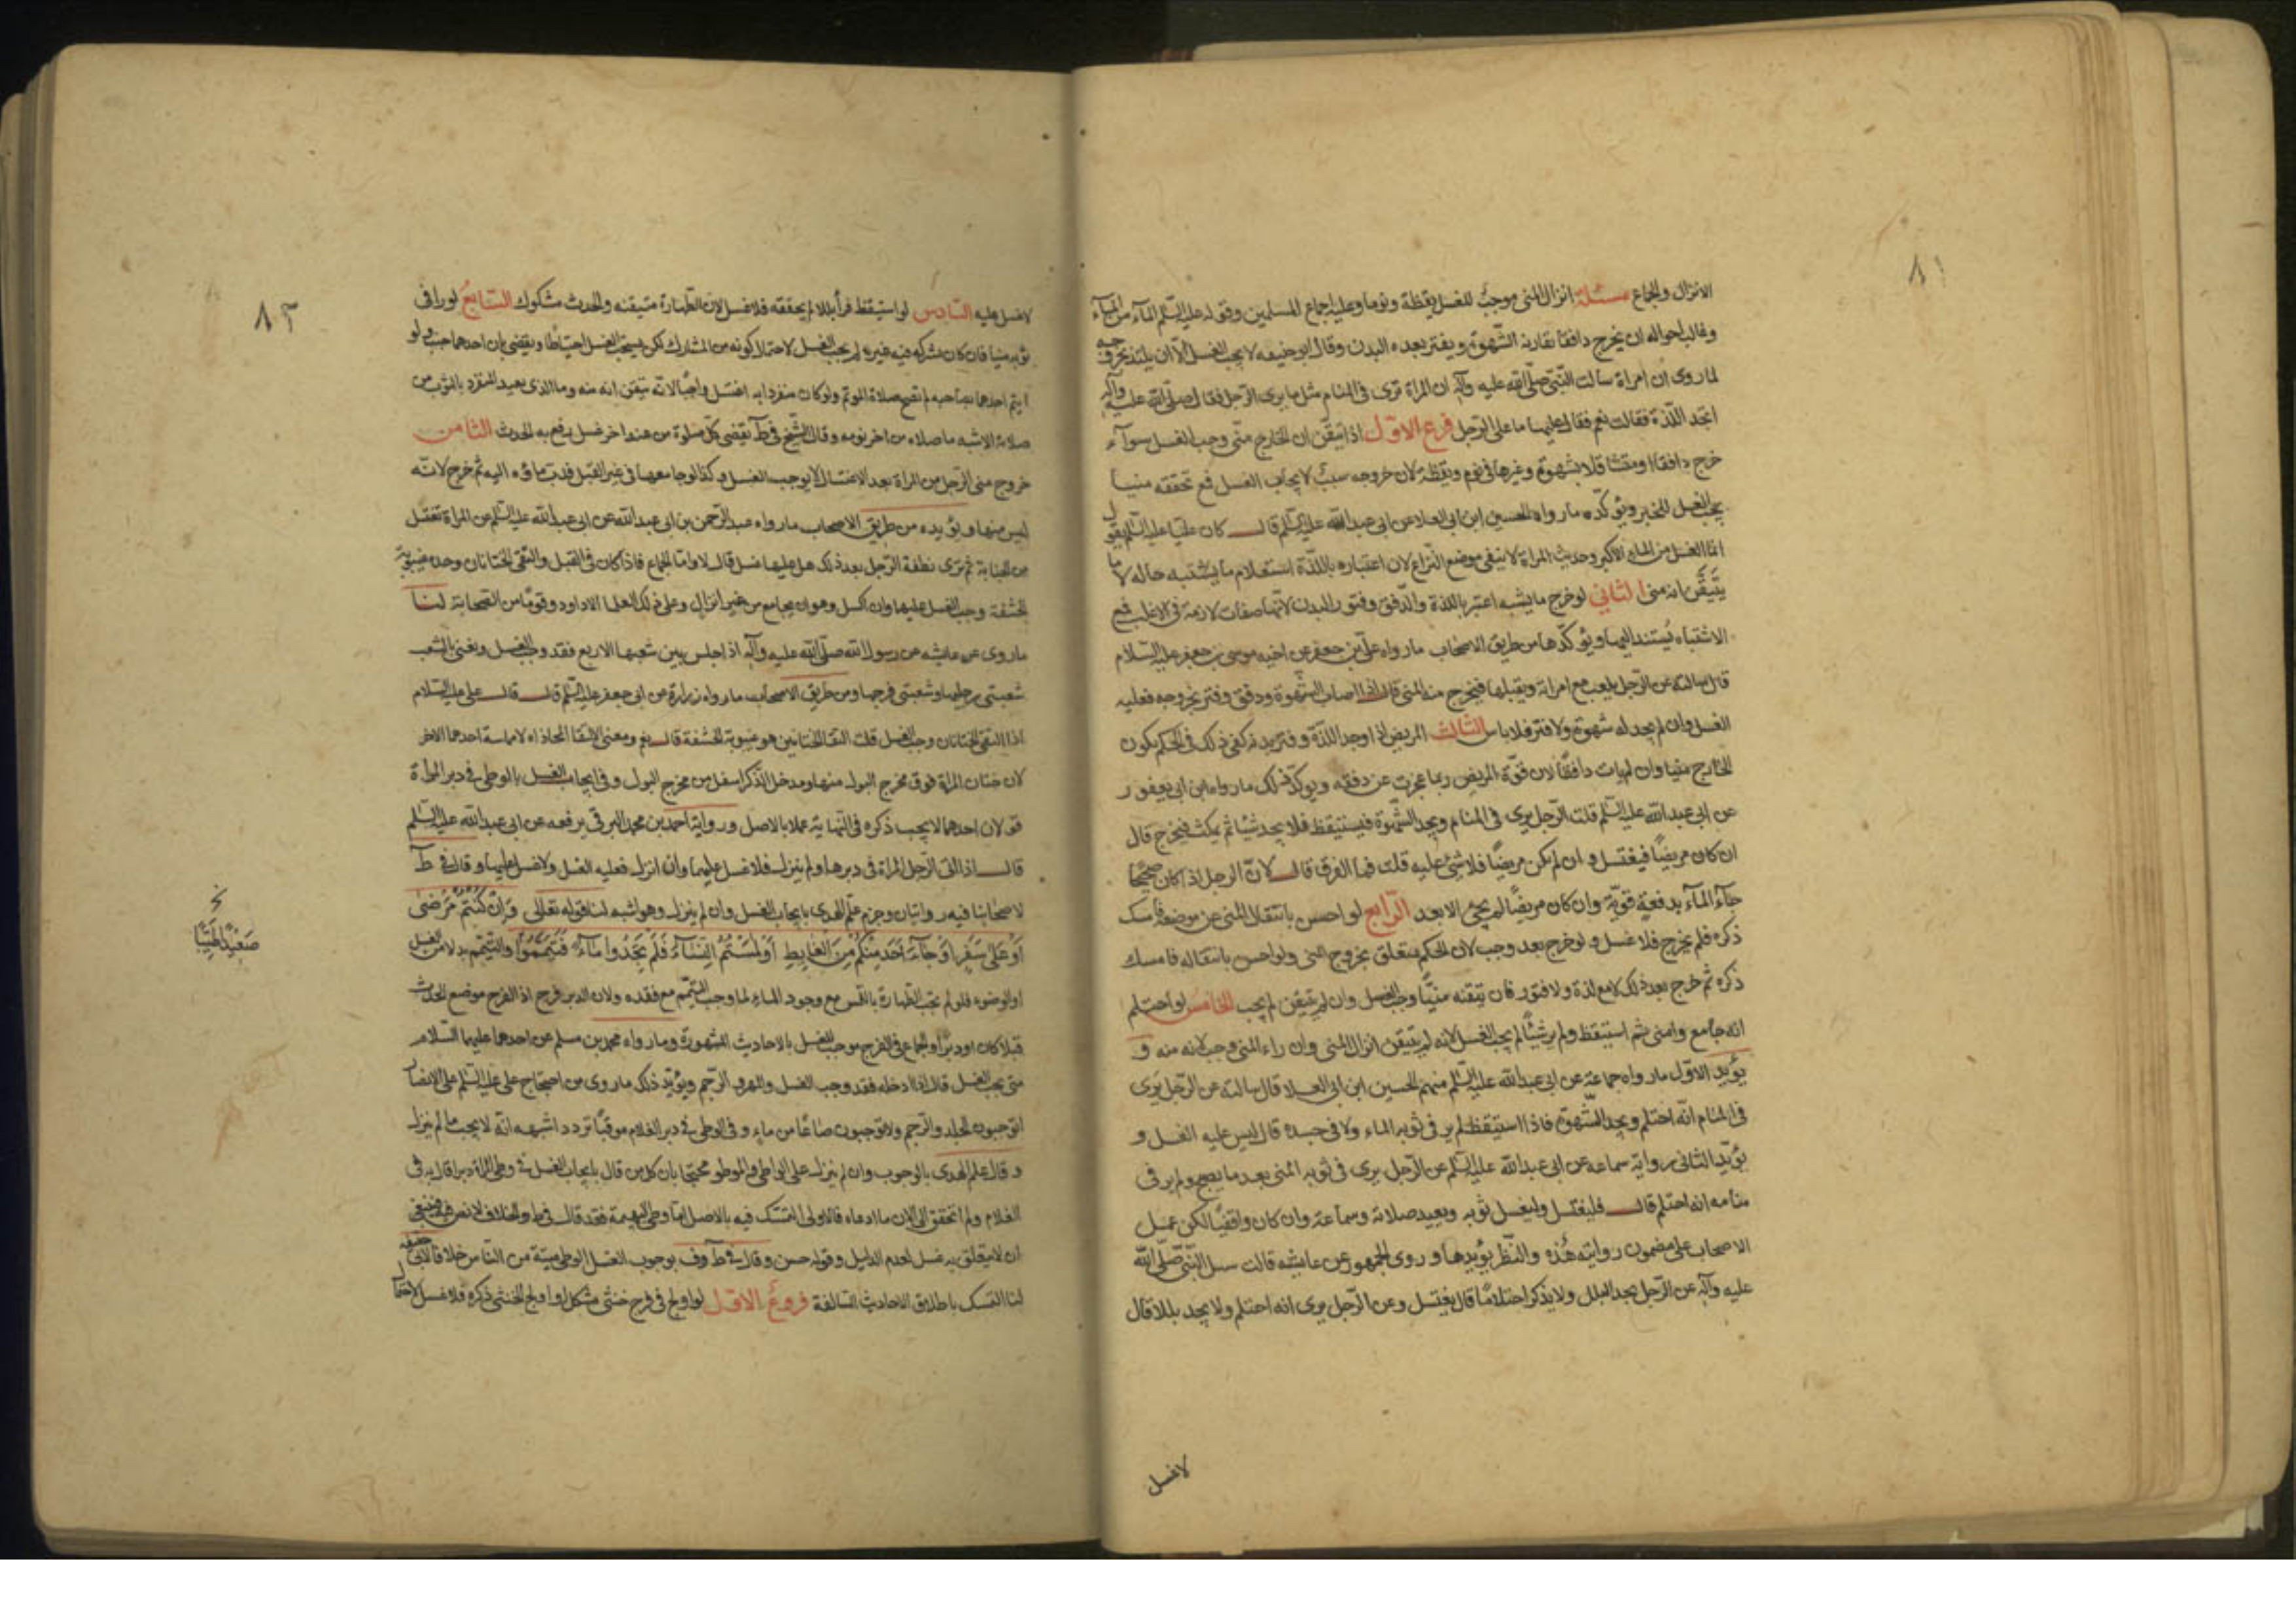 ٨١
الانزال والجماع مسئلة انزال المنى موجب للغسل يقظة ونوما وعليه اجماع المسلمين وقوله عليه السّلم المآء من المآء
وغالب احواله ان يخرج دافقا بقارنه الشّهوة ويفتر بعده البدن وقال ابو حنيفه لا يجب الغسل الّا ان يلتذ بخروجه
لما روى ان امراة سالت النّبىّ صلّى الله عليه وآله ان المراة ترى فى المنام مثل ما يرى الرّجل فقال صلّى الله عليه وآله
اتجد اللّذة فقالت نعم فقال عليها ما على الرّجل فرع الاوّل اذا تيقّن ان الخارج منّى وجب الغسل سوآء
خرج دافقا او متثاقلا بشهوة وغيرها فى نوم ويقظة لان خروجه سببٌ لايجاب الغسل فمع تحققه منيا
يجب الغسل للخبر ويؤكّده ما رواه الحسين ابن ابى العلا عن ابى عبد الله عليه السّلم قال كان علىّ عليه السّلم يقول
انّما الغسل من الماء الاكبر وحديث المراة لا ينفى موضع النّزاع لان اعتباره باللّذة استعلام ما يشتبه حاله لا ما
يتيقّن انه منى الثانى لو خرج ما يشبه اعتبر باللذة والدّفق وفتور البدن لانّها صفات لازمة فى الاغلب فمع
الاشتباه يُستند اليها ويؤكّدها من طريق الاصحاب ما رواه علىّ بن جعفر عن اخيه موسى بن جعفر عليه السّلام
قال سالته عن الرّجل يلعب مع امراته ويقبلها فيخرج منه المنى قال اذا اصاب الشّهوة ودفق وفتر بخروجه فعليه
الغسل وان لم يجد له شهوة ولا فتر فلا باس الثّالث المريض اذا وجد اللّذة وفتر بدنه كفى ذلك فى الحكم بكون
الخارج منيا وان لم يات دافقًا لان قوّة المريض ربما عجزت عن دفقه ويوكّد ذلك ما رواه ابن ابى يعفور
عن ابى عبد الله عليه السّلم قلت الرّجل يرى فى المنام ويجد الشّهوة فيستيقظ فلا يجد شيئا ثم يمكث فيخرج قال
ان كان مريضًا فيغتسل و ان لم يكن مريضًا فلا شئ عليه قلت فما الفرق قال لانّ الرجل اذا كان صحيحًا
جآء المآء بدفعة قويّة وان كان مريضًا لم يجئ الا بعد الرّابع لو احس بانتقال المنى عن موضعه فامسك
ذكره فلم يخرج فلا غسل ولو خرج بعد وجب لان الحكم متعلق بخروج المنى ولو احس بانتقاله فامسك
ذكره ثم خرج بعد ذلك لا مع لذة ولا فتور فان تيقنه منيًّا وجب الغسل وان لم يتيقن لم يجب الخامس لو احتلم
انه جامع وامنى ثم استيقظ ولم ير شيئًا لم يجب الغسل لانه لم يتيقن انزال المنى وان راء المنى وجب لانه منه و
يؤيد الاوّل ما رواه جماعة عن ابى عبد الله عليه السّلم منهم الحسين ابن ابى العلا قال سالته عن الرّجل يرى
فى المنام انّه احتلم ويجد الشّهوة فاذا استيقظ لم ير فى ثوبه الماء ولا فى جسده قال ليس عليه الغسل و
يؤيّد الثانى رواية سماعه عن ابى عبد الله عليه السّلم عن الرّجل يرى فى ثوبه المنى بعد ما يصبح ولم ير فى
منامه انه احتلم قال فليغتسل وليغسل ثوبه ويعيد صلاته وسماعة وان كان واقفيًا لكن عمل
الاصحاب على مضمون روايته هذه والنّظر يؤيدها وروى الجمهور عن عايشه قالت سئل النّبىّ صلّى الله
عليه وآله عن الرّجل يجد البلل ولا يذكر احتلامًا قال يغتسل وعن الرّجل يرى انه احتلم ولا يجد بللا قال
لا غسل
٨٢
لا غسل عليه السّادس لو استيقظ فرأ بللا لم يحققه فلا غسل لان الطّهارة متيقنه والحدث مشكوك السّابع لو را فى
ثوبه منيا فان كان يشركه فيه غيره لم يجب الغسل لاحتمال كونه من المشارك لكن يستحب الغسل احتياطًا ويقضى بان احدهما جنب ولو
ايتم احدهما بصاحبه لم تصح صلاة الموتم ولو كان منفردا به اغتسل واجبًا لانّه تيقن انه منه وما الذى يعيد المنفرد بالثوب من
صلاته الاشبه ما صلاه من اخر نومه وقال الشّيخ فى ط يقضى كلّ صلوة من عند اخر غسل رفع به الحدث الثّامن
خروج منى الرّجل من المراة بعد الاغتسال لا يوجب الغسل وكذا لو جامعها فى غير القبل فدبّ ماؤه اليه ثم خرج لانّه
ليس منها ويؤيده من طريق الاصحاب ما رواه عبد الرّحمن بن ابى عبد الله عن ابى عبد الله عليه السّلم عن المراة تغتسل
من الجنابة ثم ترى نطفة الرّجل بعد ذلك هل عليها غسل قال لا وامّا الجماع فاذا كان فى القبل والتقى الختانان وحده غيبوبة
الحشفة وجب الغسل عليها وان اكسل وهو ان يجامع من غير انزال وعلى ذلك العلما الا داود وقومًا من الصّحابة لنا
ما روى عن عايشه عن رسول الله صلّى الله عليه وآله اذا جلس بين شعبها الاربع فقد وجب الغسل ونعنى بالشعب
شعبتى رجليها وشعبتى فرجها ومن طريق الاصحاب ما رواه زرارة عن ابى جعفر عليه السّلم قال قال على عليه السّلام
اذا التقى الختانان وجب الغسل قلت التقا الختانين هو غيبوبة الحشفة قال نعم ومعنى الالتقا المحاذاه لا مماسة احدهما الاخر
لان ختان المراة فوق مخرج البول منها ومدخل الذكر اسفل من مخرج البول وفى ايجاب الغسل بالوطى فى دبر المراة
قولان احدهما لا يجب ذكره فى النّهاية عملا بالاصل ورواية احمد بن محمد البرقى يرفعه عن ابى عبد الله عليه السّلم
قال اذا اتى الرّجل المراة فى دبرها ولم ينزل فلا غسل عليهما وان انزل فعليه الغسل ولا غسل عليها وقال فى ط
لاصحابنا فيه روايتان وجزم علم الهدى بايجاب الغسل وان لم ينزل وهو اشبه لنا قوله تعالى وَاِنْ كُنتُمْ مَرْضىٰ
اَوْ عَلىٰ سَفَرٍ اَوْ جَآءَ اَحَدٌ مِنْكُمْ مِنَ الْغَايِطِ اَوْ لٰمَسْتُمُ النِّسَآءَ فَلَمْ تَجِدُوا مَآءً فَتَيَمَّمُوا والتيمّم بدلا من الغسل
نخ
صَعِيدًا طَيِّبًا
او الوضوء فلو لم تجب الطّهارة باللّمس مع وجود الماء لما وجب التيمّم مع فقده ولان الدبر فرج اذ الفرج موضع الحدث
قبلا كان او دبرًا والجماع فى الفرج موجب للغسل بالاحاديث المشهورة وما رواه محمد بن مسلم عن احدهما عليهما السّلام
متى يجب الغسل قال اذا ادخله فقد وجب الغسل والمهر و الرّجم ويؤيّد ذلك ما روى من احتجاج على عليه السّلم على الانصار
اتوجبون الجلد والرّجم ولا توجبون صاعًا من ماء وفى الوطى فى دبر الغلام موقبًا تردد اشبهه انّه لا يجب ما لم ينزل
وقال علم الهدى بالوجوب وان لم ينزل على الواطى والموطو محتجّا بان كل من قال بايجاب الغسل فى وطى المراة دبرا قال به فى
الغلام ولم اتحقق الى الان ما ادعاه فالاولى التمسّك فيه بالاصل امّا وطى البهيمة فقد قال فى ط والخلاف لا نص فيه فينبغى
ان لا يتعلق به غسل لعدم الدليل وقوله حسن وقال فى ط وف بوجوب الغسل لوطى ميتة من النّاس خلافا لابى حنيفه
لنا التمسك باطلاق الاحاديث السّالفة فروعٌ الاوّل لو اولج فى فرج خنثى مشكل او اولج الخنثى ذكره فلا غسل لاحتمال